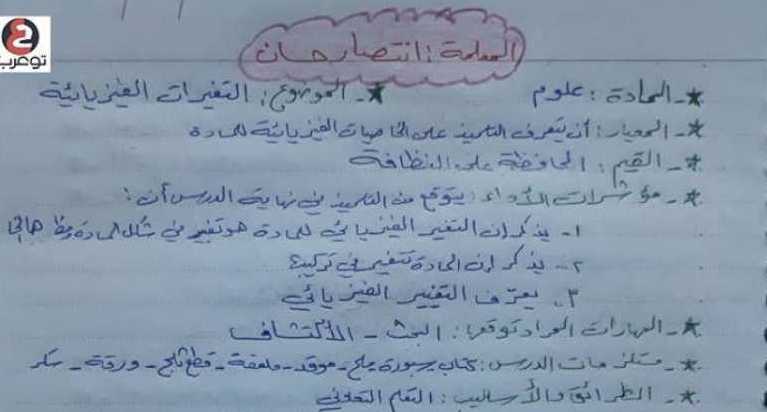 توعرب
المعلمة: انتصار حسان
* - المادة: علوم * - الموضوع: التغيرات الفيزيائية
* - المعيار: أن يتعرف التلميذ على الخاصيات الفيزيائية للمادة
* - القيم: المحافظة على النظافة
* - مؤشرات الأداء: يتوقع من التلميذ في نهاية الدرس أن:
١- يذكر ان التغير الفيزيائي للمادة هو تغير في شكل المادة
٢- يذكر ان المادة تتغير في تركيب
٣. يعرف التغيير الفيزيائي
* - المهارات المراد توقعها: البحث - الاكتشاف
* - مستلزمات الدرس: كتاب سبورة ملح - موقد - ملعقة - قطع ثلج - ورقة - سكر
* - الطرائق والأساليب: التعلم التعاوني